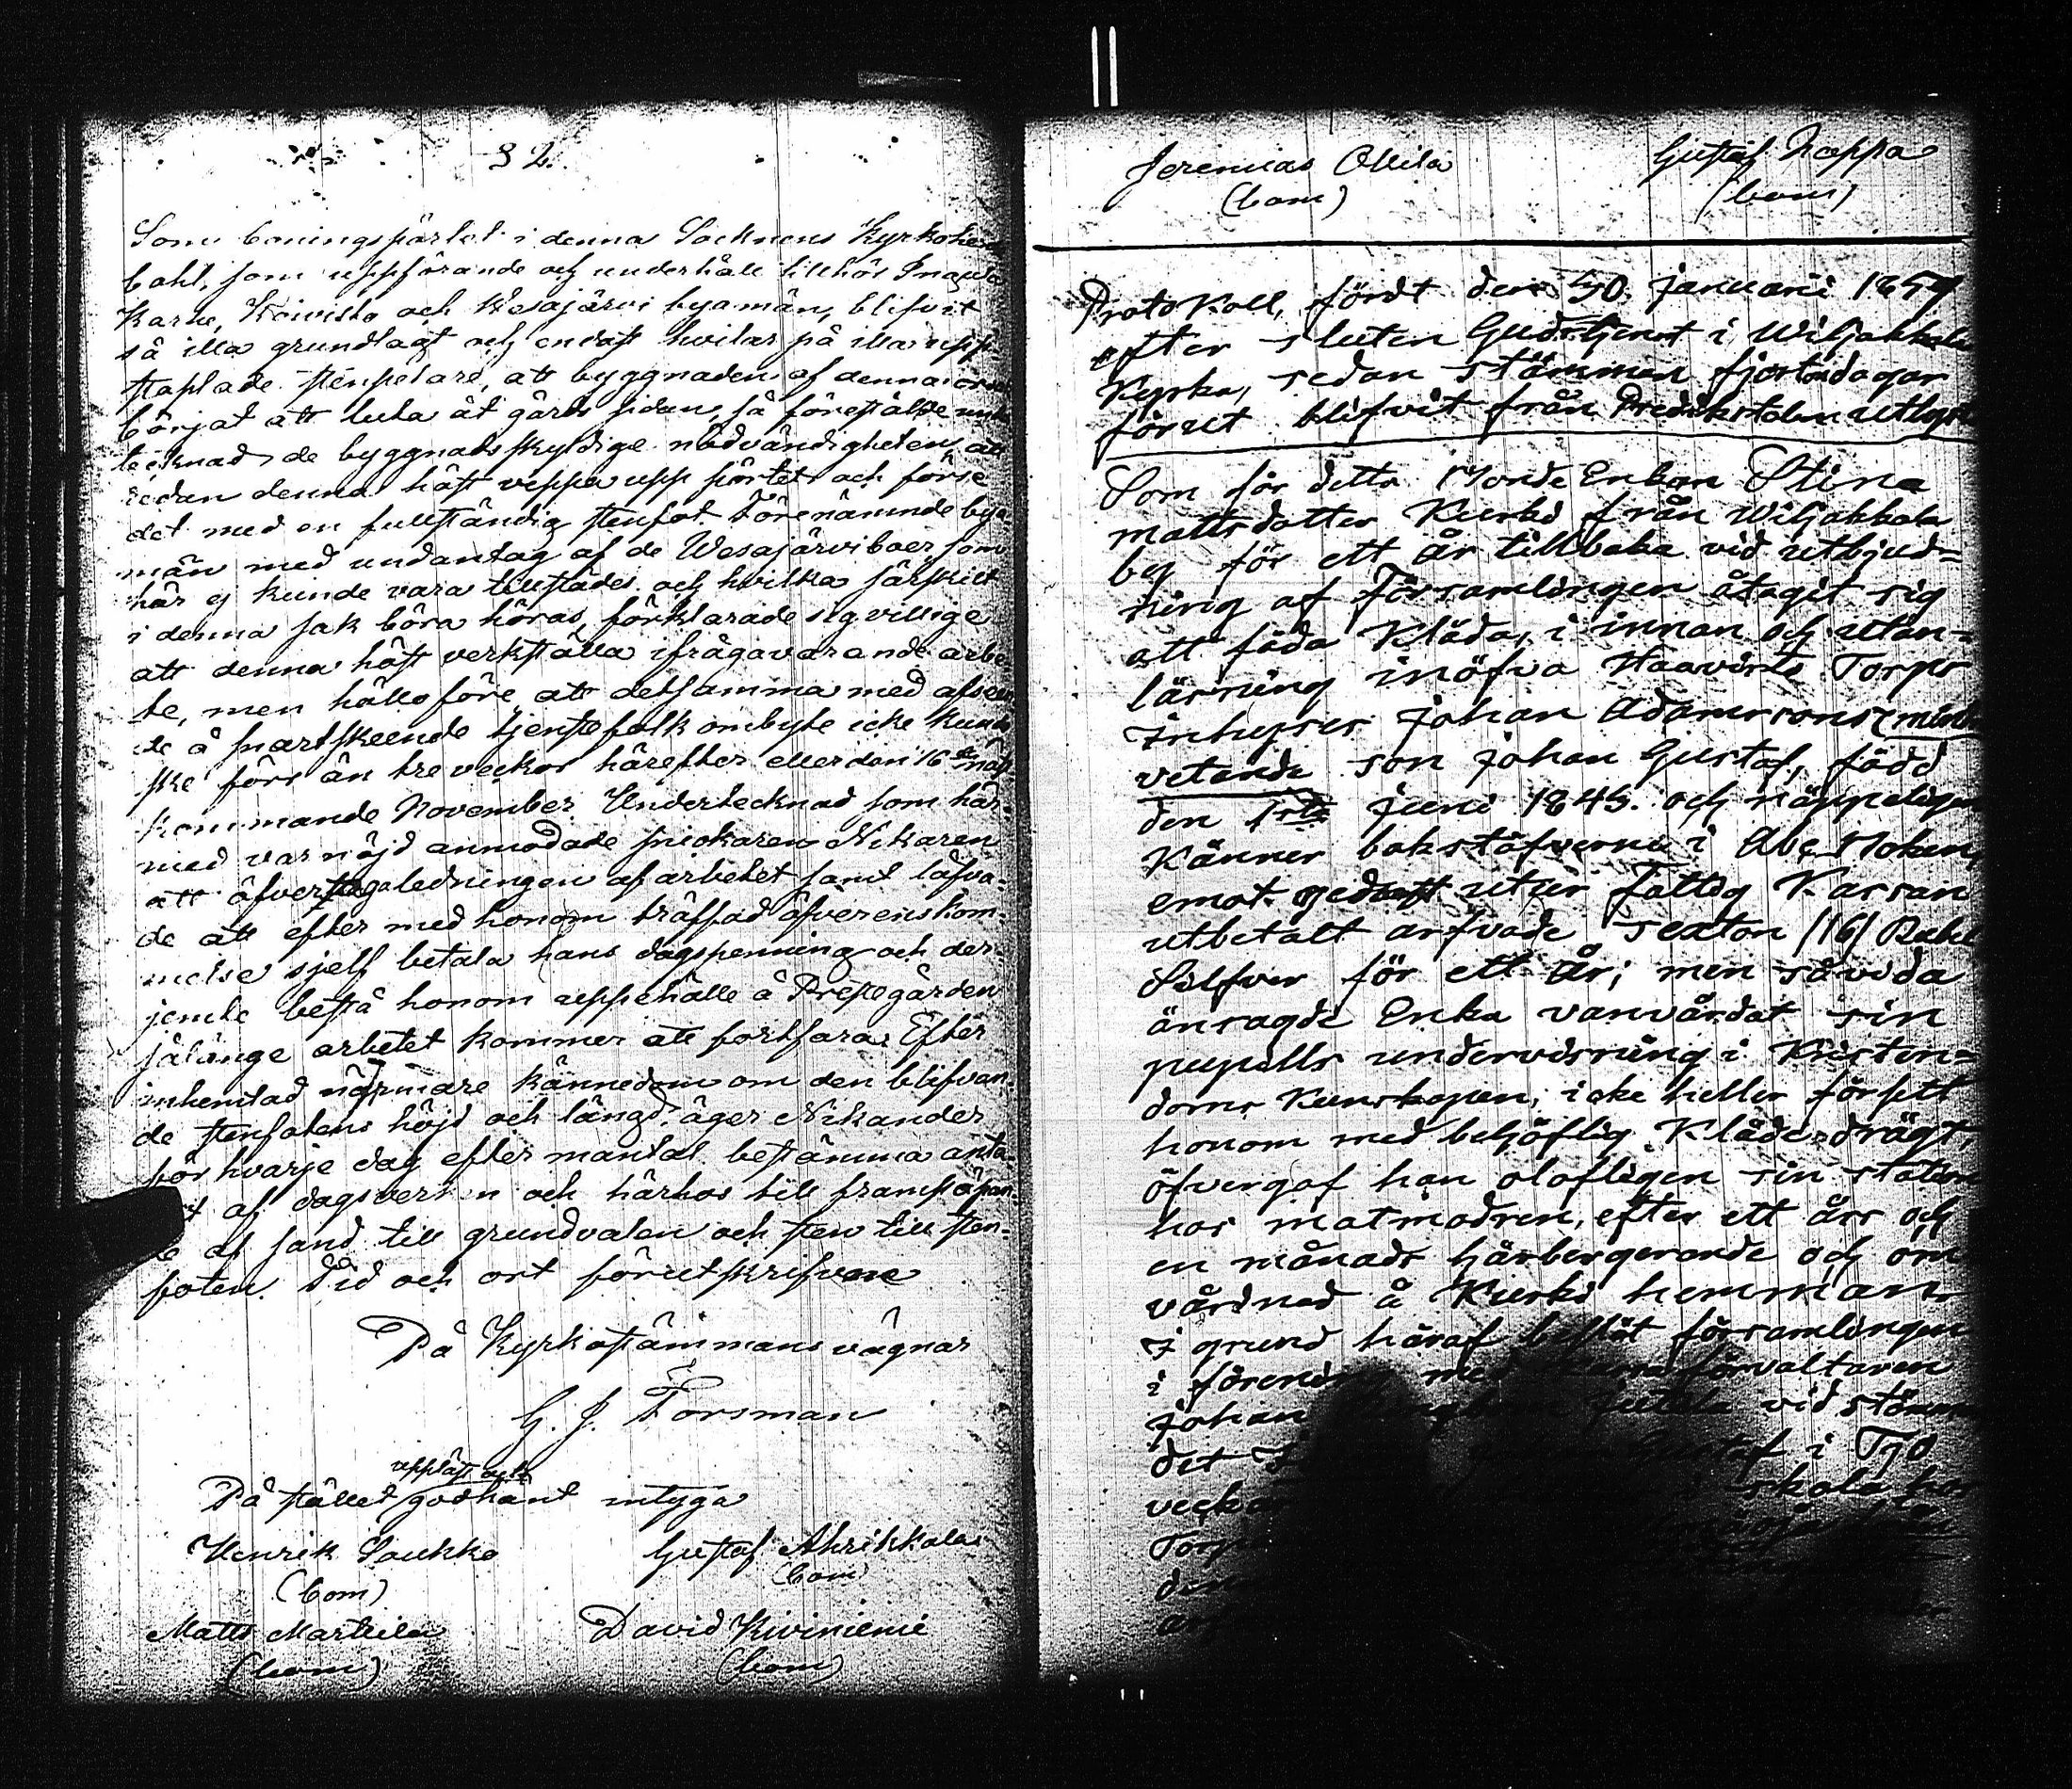 § 2.
Som boningspörtet i denna Socknens Kyrkoher
bohl, som uppförande och underhåll tillhör
Karhe, Koivisto och Wesajärvi byamän, blifvit
så illa grundlagt och endast hvilar på illa upp-
staplade stenpelare, att byggnaden af denna
börjat att luta åt gårds sidan, så förestälde
tecknad de byggnadsskyldige nödvändigheten att
redan denna höst veppa upp pörtet och förse
det med en fullständig stenfot. Förenämnde bya
män med undantag af de Wesajärviboer, som
här ej kunde vara tillstädes och hvilka särskilt
i denna sak böra höras, förklarade sig villige
att denna höst verkställa ifrågavarande arbe
te, men höllo före att detsamma med afseen
de å snart skeende tjenstefolk ombyte icke kunde
ske förr än tre veckor härefter eller den 16de näst
kommande November. Undertecknad som här-
med var nöjd anmodade snickaren Nikaren
att öfvertaga ledningen af arbetet samt låfva-
de att efter med honom träffad öfverenskom-
melse sjelf betala hans dagspenning och der-
jemte bestå honom uppehälle å Prestgården
sålänge arbetet kommer att fortfara. Efter
inhemtad närmare kännedom om den blifvan-
de stenfotens höjd och längd, äger Nikander
för hvarje dag efter mantal bestämma anta-
af dagsverken och härhos till
af sand till grundvalen och sten till sten-
foten. Tid och ort förutskrifvne
På Kyrkostämmans vägnar
G. J. Forsman
uppläst och
På stället godkänt intyga
Henrik Saukko Gustaf Ahrikkala
(bom) (bom)
Matts Marttila David Kiviniemi
(bom) (bom)
Jeremias Ollila Gustaf Nappa
(bom) (bom)
Protokoll, fördt den 30 januarii 1859
efter sluten Gudstjenst i Wiljakkala
Kyrka, sedan stämman fjorton dagar
förut blifvit från Predikstolen utlyst
Som för detta Bonde Enkan Stina
mattsdotter Kurki från Wiljakkala
by för ett år tillbaka vid utbjud-
ning af Församlingen åtagit sig
att föda Kläda, i innan och utan-
lärning inöfva Haavisto Torps
Inhyses Johan Adamssons mind
vetande son Johan Gustaf, född
den 1sta Juni 1845. och näppeligen
Känner bokstäfverna i Abc Boken,
emot utur Fattig Kassan
utbetalt arfvode sexton /16/ Rubel
Silfver för ett år; men såvida
änsagde Enka vanvårdat sin
pupills undervisning i Kristen-
doms Kunskapen, icke heller försett
honom med behöflig Klädedrägt,
öfvergaf han olofligen sin station
hos matmodren, efter ett års och
en månads härbergerande och om
vårdnad å Kurki hemman.
I grund häraf beslöt församlingen
i förening med Kassaförvaltaren
Johan Juttila vid stämman
det i Tjo
vecko skola hos
Torp